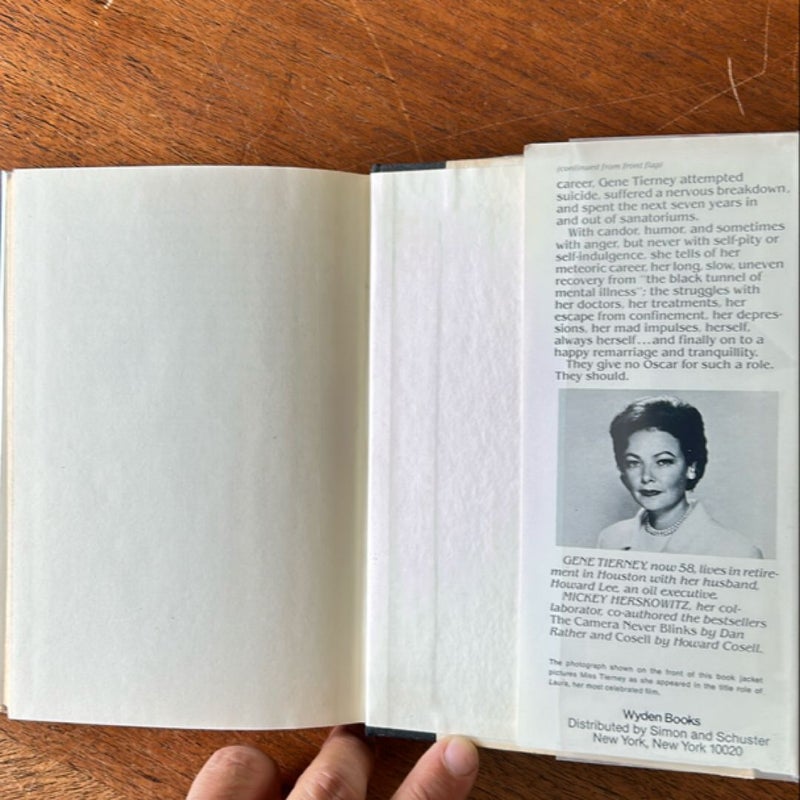 (continued from front flap)
career, Gene Tierney attempted
suicide, suffered a nervous breakdown,
and spent the next seven years in
and out of sanatoriums.
With candor, humor, and sometimes
with anger, but never with self-pity or
self-indulgence, she tells of her
meteoric career, her long, slow, uneven
recovery from "the black tunnel of
mental illness"; the struggles with
her doctors, her treatments, her
escape from confinement, her depres-
sions, her mad impulses, herself,
always herself...and finally on to a
happy remarriage and tranquillity.
They give no Oscar for such a role.
They should.
GENE TIERNEY, now 58, lives in retire-
ment in Houston with her husband,
Howard Lee, an oil executive.
MICKEY HERSKOWITZ, her col-
laborator, co-authored the bestsellers
The Camera Never Blinks by Dan
Rather and Cosell by Howard Cosell.
The photograph shown on the front of this book jacket
pictures Miss Tierney as she appeared in the title role of
Laura, her most celebrated film.
Wyden Books
Distributed by Simon and Schuster
New York, New York 10020